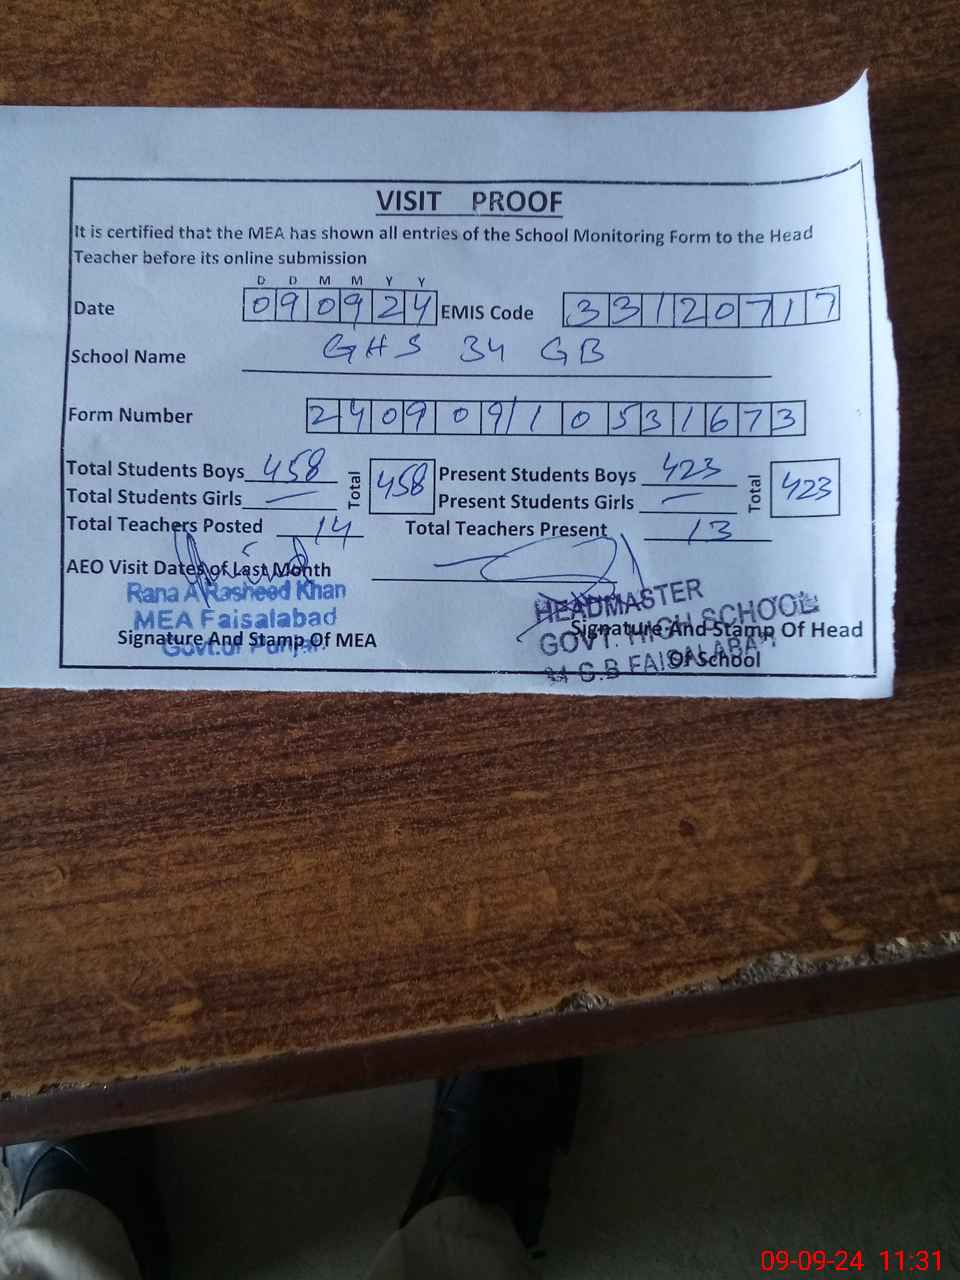 VISIT PROOF
It is certified that the MEA has shown all entries of the School Monitoring Form to the Head
Teacher before its online submission
D D M M Y Y
Date 090924 EMIS Code 33120717
School Name GHS 34 GB
Form Number 240909/10531673
Total Students Boys 458 Total 458 Present Students Boys 423 Total 423
Total Students Girls — Present Students Girls —
Total Teachers Posted 14 Total Teachers Present 13
AEO Visit Dates of Last Month —
Rana A Rasheed Khan
MEA Faisalabad
Govt.of Punjab
Signature And Stamp Of MEA
HEADMASTER
GOVT. HIGH SCHOOL
34 G.B FAISALABAD
Signature And Stamp Of Head
Of School
09-09-24 11:31